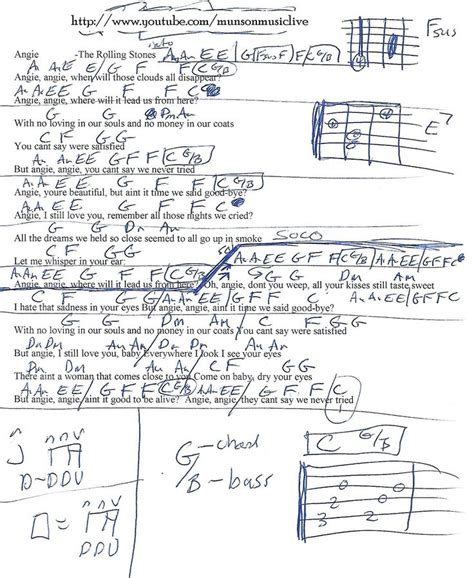 http://www.youtube.com/munsonmusiclive
intro
Angie -The Rolling Stones Am Am E E | G (Fsus F) F | C G/B |
Fsus
Am Am E E / G F F (C G/B)
Angie, angie, when will those clouds all disappear?
Am Am E E G F F C
Angie, angie, where will it lead us from here?
G G Dm Am
With no loving in our souls and no money in our coats
E7
C F G G
You cant say were satisfied
Am Am E E G F F (C G/B)
But angie, angie, you cant say we never tried
Am Am E E G F F (C G/B)
Angie, youre beautiful, but aint it time we said good-bye?
Am Am E E G F F C
Angie, I still love you, remember all those nights we cried?
G G Dm Am
All the dreams we held so close seemed to all go up in smoke SOLO
C F G G
Let me whisper in your ear: Am Am E E G F F (C G/B) Am Am E E | G F F C
Am Am E E G F F (C G/B) G G Dm Am C F G G
Angie, angie, where will it lead us from here? Oh, angie, dont you weep, all your kisses still taste sweet
C F G G / Am Am E E / G F F C Am Am E E G F F C
I hate that sadness in your eyes But angie, angie, aint it time we said good-bye?
G G Dm Am C F G G
With no loving in our souls and no money in our coats You cant say were satisfied
Dm Dm Am Am Dm Dm Am Am
But angie, I still love you, baby Everywhere I look I see your eyes
Dm Dm Am Am C F G G
There aint a woman that comes close to you Come on baby, dry your eyes
Am Am E E / G F F (C G/B) Am Am E E / G F F C
But angie, angie, aint it good to be alive? Angie, angie, they cant say we never tried
G - chord
/B - bass
C G/B
D - DDU
DDU
3 2 0
2 0